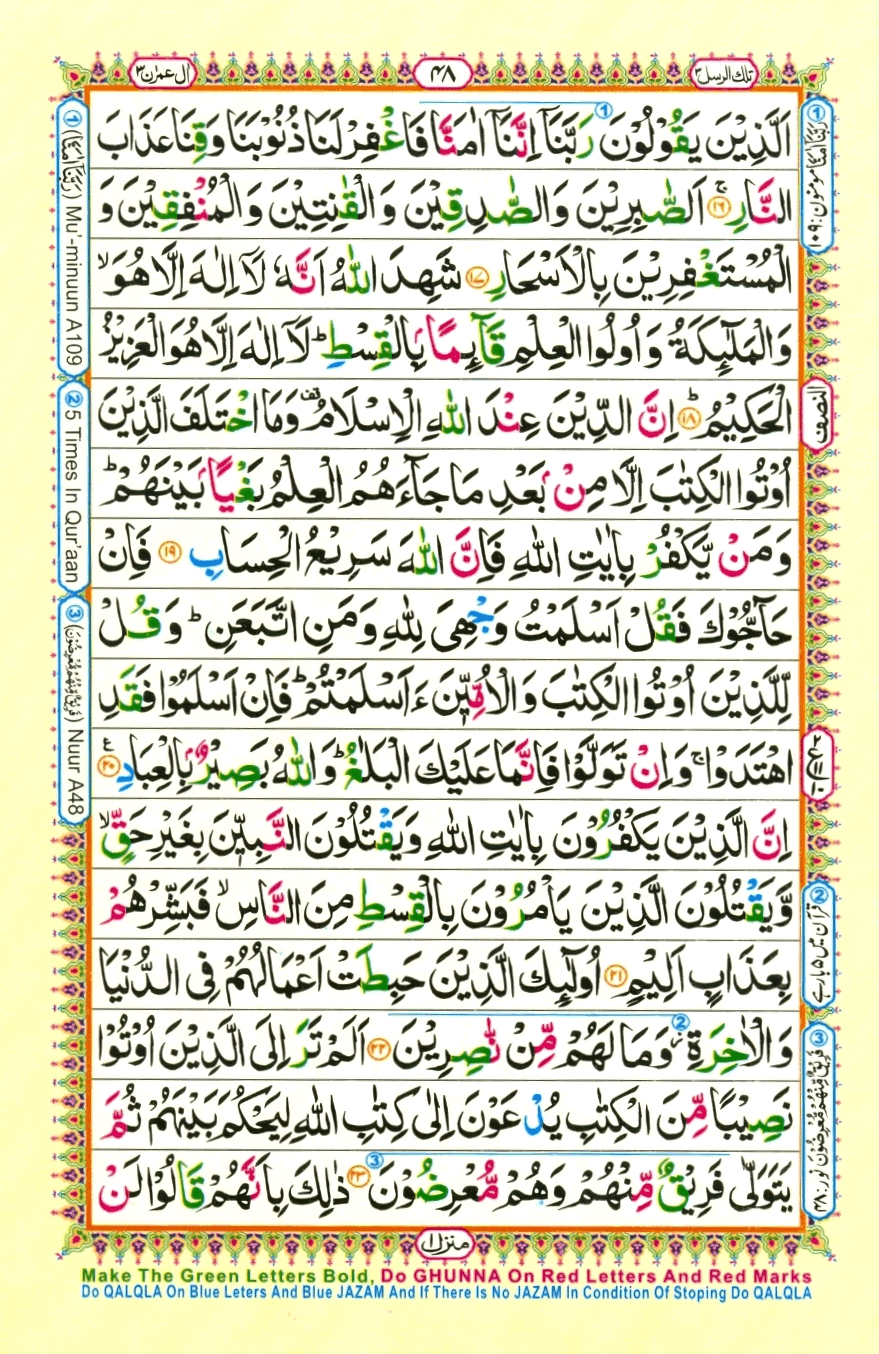 تلك الرسل ٣
٤٨
اٰل عمرٰن ٣
اَلَّذِيْنَ يَقُوْلُوْنَ رَبَّنَآ اِنَّنَآ اٰمَنَّا فَاغْفِرْ لَنَا ذُنُوْبَنَا وَقِنَا عَذَابَ
النَّارِ ۚ ﴿۱۶﴾ اَلصّٰبِرِيْنَ وَالصّٰدِقِيْنَ وَالْقٰنِتِيْنَ وَالْمُنْفِقِيْنَ وَ
الْمُسْتَغْفِرِيْنَ بِالْاَسْحَارِ ﴿۱۷﴾ شَهِدَ اللّٰهُ اَنَّهٗ لَآ اِلٰهَ اِلَّا هُوَ ۙ
وَالْمَلٰٓئِكَةُ وَاُولُوا الْعِلْمِ قَآئِمًۢا بِالْقِسْطِ ؕ لَآ اِلٰهَ اِلَّا هُوَ الْعَزِيْزُ
الْحَكِيْمُ ؕ ﴿۱۸﴾ اِنَّ الدِّيْنَ عِنْدَ اللّٰهِ الْاِسْلَامُ ۫ وَمَا اخْتَلَفَ الَّذِيْنَ
اُوْتُوا الْكِتٰبَ اِلَّا مِنْۢ بَعْدِ مَا جَآءَهُمُ الْعِلْمُ بَغْيًۢا بَيْنَهُمْ ؕ
وَمَنْ يَّكْفُرْ بِاٰيٰتِ اللّٰهِ فَاِنَّ اللّٰهَ سَرِيْعُ الْحِسَابِ ﴿۱۹﴾ فَاِنْ
حَآجُّوْكَ فَقُلْ اَسْلَمْتُ وَجْهِىَ لِلّٰهِ وَمَنِ اتَّبَعَنِ ؕ وَقُلْ
لِّلَّذِيْنَ اُوْتُوا الْكِتٰبَ وَالْاُمِّيّٖنَ ءَاَسْلَمْتُمْ ؕ فَاِنْ اَسْلَمُوْا فَقَدِ
اهْتَدَوْا ۚ وَاِنْ تَوَلَّوْا فَاِنَّمَا عَلَيْكَ الْبَلٰغُ ؕ وَاللّٰهُ بَصِيْرٌۢ بِالْعِبَادِ ﴿۲۰﴾ ع
اِنَّ الَّذِيْنَ يَكْفُرُوْنَ بِاٰيٰتِ اللّٰهِ وَيَقْتُلُوْنَ النَّبِيّٖنَ بِغَيْرِ حَقٍّ ۙ
وَّيَقْتُلُوْنَ الَّذِيْنَ يَاْمُرُوْنَ بِالْقِسْطِ مِنَ النَّاسِ ۙ فَبَشِّرْهُمْ
بِعَذَابٍ اَلِيْمٍ ﴿۲۱﴾ اُولٰٓئِكَ الَّذِيْنَ حَبِطَتْ اَعْمَالُهُمْ فِى الدُّنْيَا
وَالْاٰخِرَةِ ۫ وَمَا لَهُمْ مِّنْ نّٰصِرِيْنَ ﴿۲۲﴾ اَلَمْ تَرَ اِلَى الَّذِيْنَ اُوْتُوْا
نَصِيْبًا مِّنَ الْكِتٰبِ يُدْعَوْنَ اِلٰى كِتٰبِ اللّٰهِ لِيَحْكُمَ بَيْنَهُمْ ثُمَّ
يَتَوَلّٰى فَرِيْقٌ مِّنْهُمْ وَهُمْ مُّعْرِضُوْنَ ﴿۲۳﴾ ذٰلِكَ بِاَنَّهُمْ قَالُوْا لَنْ
① (رَبَّنَآ اٰمَنَّا) مومنون: ۱۰۹
النصف
② قرآن میں ۵ بار ہے
③ فَرِيْقٌ مِّنْهُمْ مُّعْرِضُوْنَ نور: ۴۸
① (رَبَّنَآ اٰمَنَّا) Mu'-minuun A109
② 5 Times In Qur'aan
③ (فَرِيْقٌ مِّنْهُمْ مُّعْرِضُوْنَ) Nuur A48
منزل ۱
Make The Green Letters Bold, Do GHUNNA On Red Letters And Red Marks
Do QALQLA On Blue Leters And Blue JAZAM And If There Is No JAZAM In Condition Of Stoping Do QALQLA